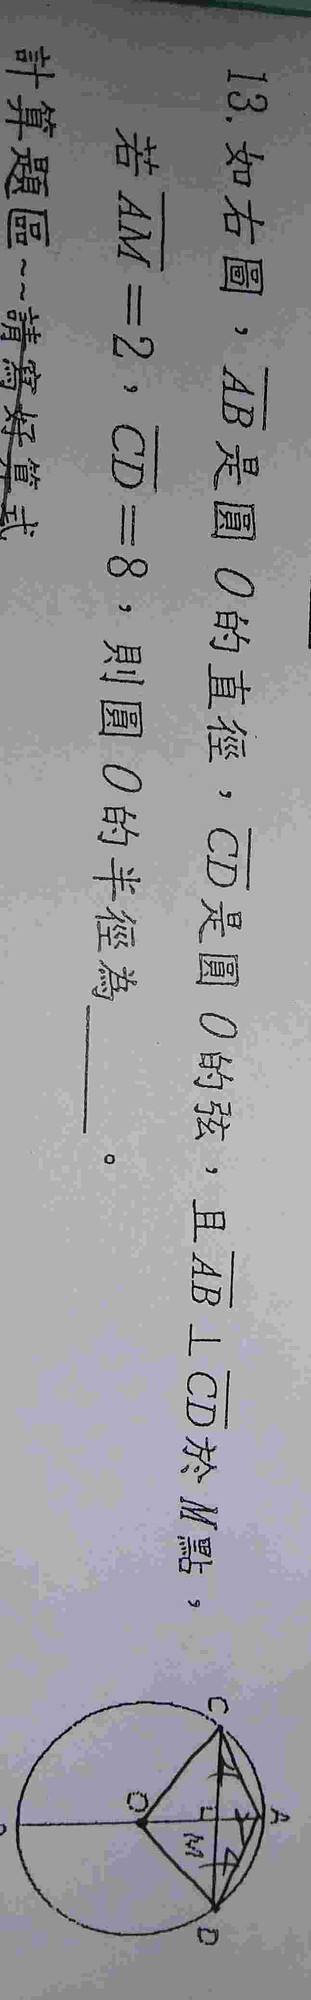 13. 如右圖，AB是圓O的直徑，CD是圓O的弦，且AB⊥CD於M點，
若AM=2，CD=8，則圓O的半徑為______。
計算題區~~請寫好算式
A
C
M
D
O